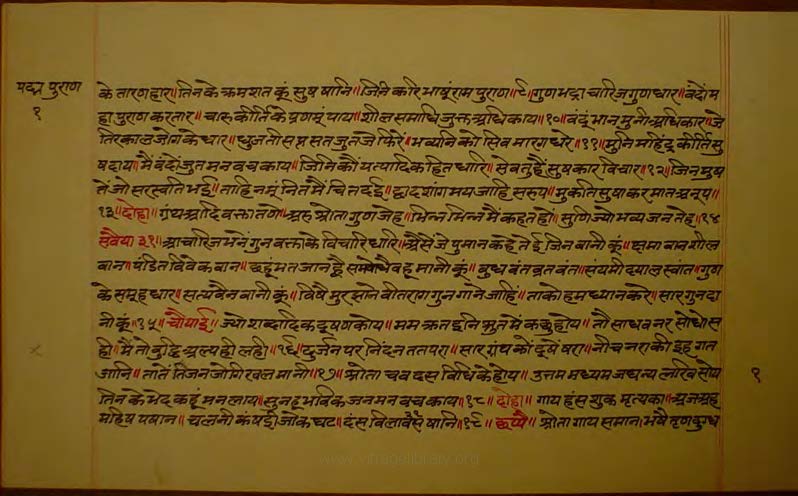 पद्म पुराण
१
के तारणहार॥तिनके क्रमशतकूं सुषषानि॥जिनि करि भाषूं राम पुराण॥९॥गुणभद्राचारिज गुणधार॥वंदौं म
हापुराण करतार॥चारुकीर्ति के प्रणमूं पाय॥शीलसमाधिजुक्त अधिकाय॥१०॥वंदूं भानमुनी अधिकार॥जे
तिरकाल जोग के धार॥धुजती सप्त सत जुत जे फिरें॥भव्यनि को सिव मारग धरे॥११॥मुनि महिंद्र कीर्ति सु
षदाय॥मैं वंदों जुत मन वच काय॥जिनि कौं पत्यादिक हित धारि॥सेवतु हैं सुषकार विचार॥१२॥जिन मुष
तें जो सरस्वति भई॥ताहि नमूं नित मैं चित दई॥द्वादशांगमय जाहि सरूप॥मुकति सुषाकर मात अनूप॥
१३॥दोहा॥ग्रंथ आदि वक्ता तणे॥अरु श्रोता गुण जेह॥भिन्न भिन्न मैं कहत हो॥सुणिज्यो भव्य जन तेह॥१४
सवैया ३१॥आचारिज भनें गुन वक्ता के विचारि धारि॥असैं जे पुमान कहे तेई जिनवानी कूं॥क्षमावान शील
वान॥पंडित विवेकवान॥छहूं मत जान है बहु मानी कूं॥बुधवंत व्रतवंत॥संयमी दयाल स्वांत॥गुण
के समूह धार॥सत्य वैन वानी कूं॥विषै मुरझाने वीतराग गुन गाने जाहिं॥ताको हम ध्यान करे॥सार गुन दा
नी कूं॥१५॥चौपाई॥ज्यो शब्दादिक दूषण कोय॥मम क्रत इनि श्रुत में कछु होय॥तौ साधव नर सोधो स
ही॥मैं तो बुद्धि अल्प ही लही॥१६॥दुर्जन पर निंदन ततपरा॥सार ग्रंथ कों दूषें षरा॥नीच नरा की इह गत
जानि॥तातें तिज न जोगि खल मानो॥१७॥श्रोता चवदस विधि के होय॥उत्तम मध्यम जघन्य सोय
तिन के भेद कहूं मन लाय॥सुनहू भविक जन मन वच काय॥१८॥दोहा॥गाय हंस शुक मृत्यका॥अज अह
महिष पषान॥चलनी कंघई जोक घट॥दंस विलाव षानि॥१९॥छप्पै॥श्रोता गाय समान॥भषै तृण दुग्ध
१
www.vitragelibrary.org